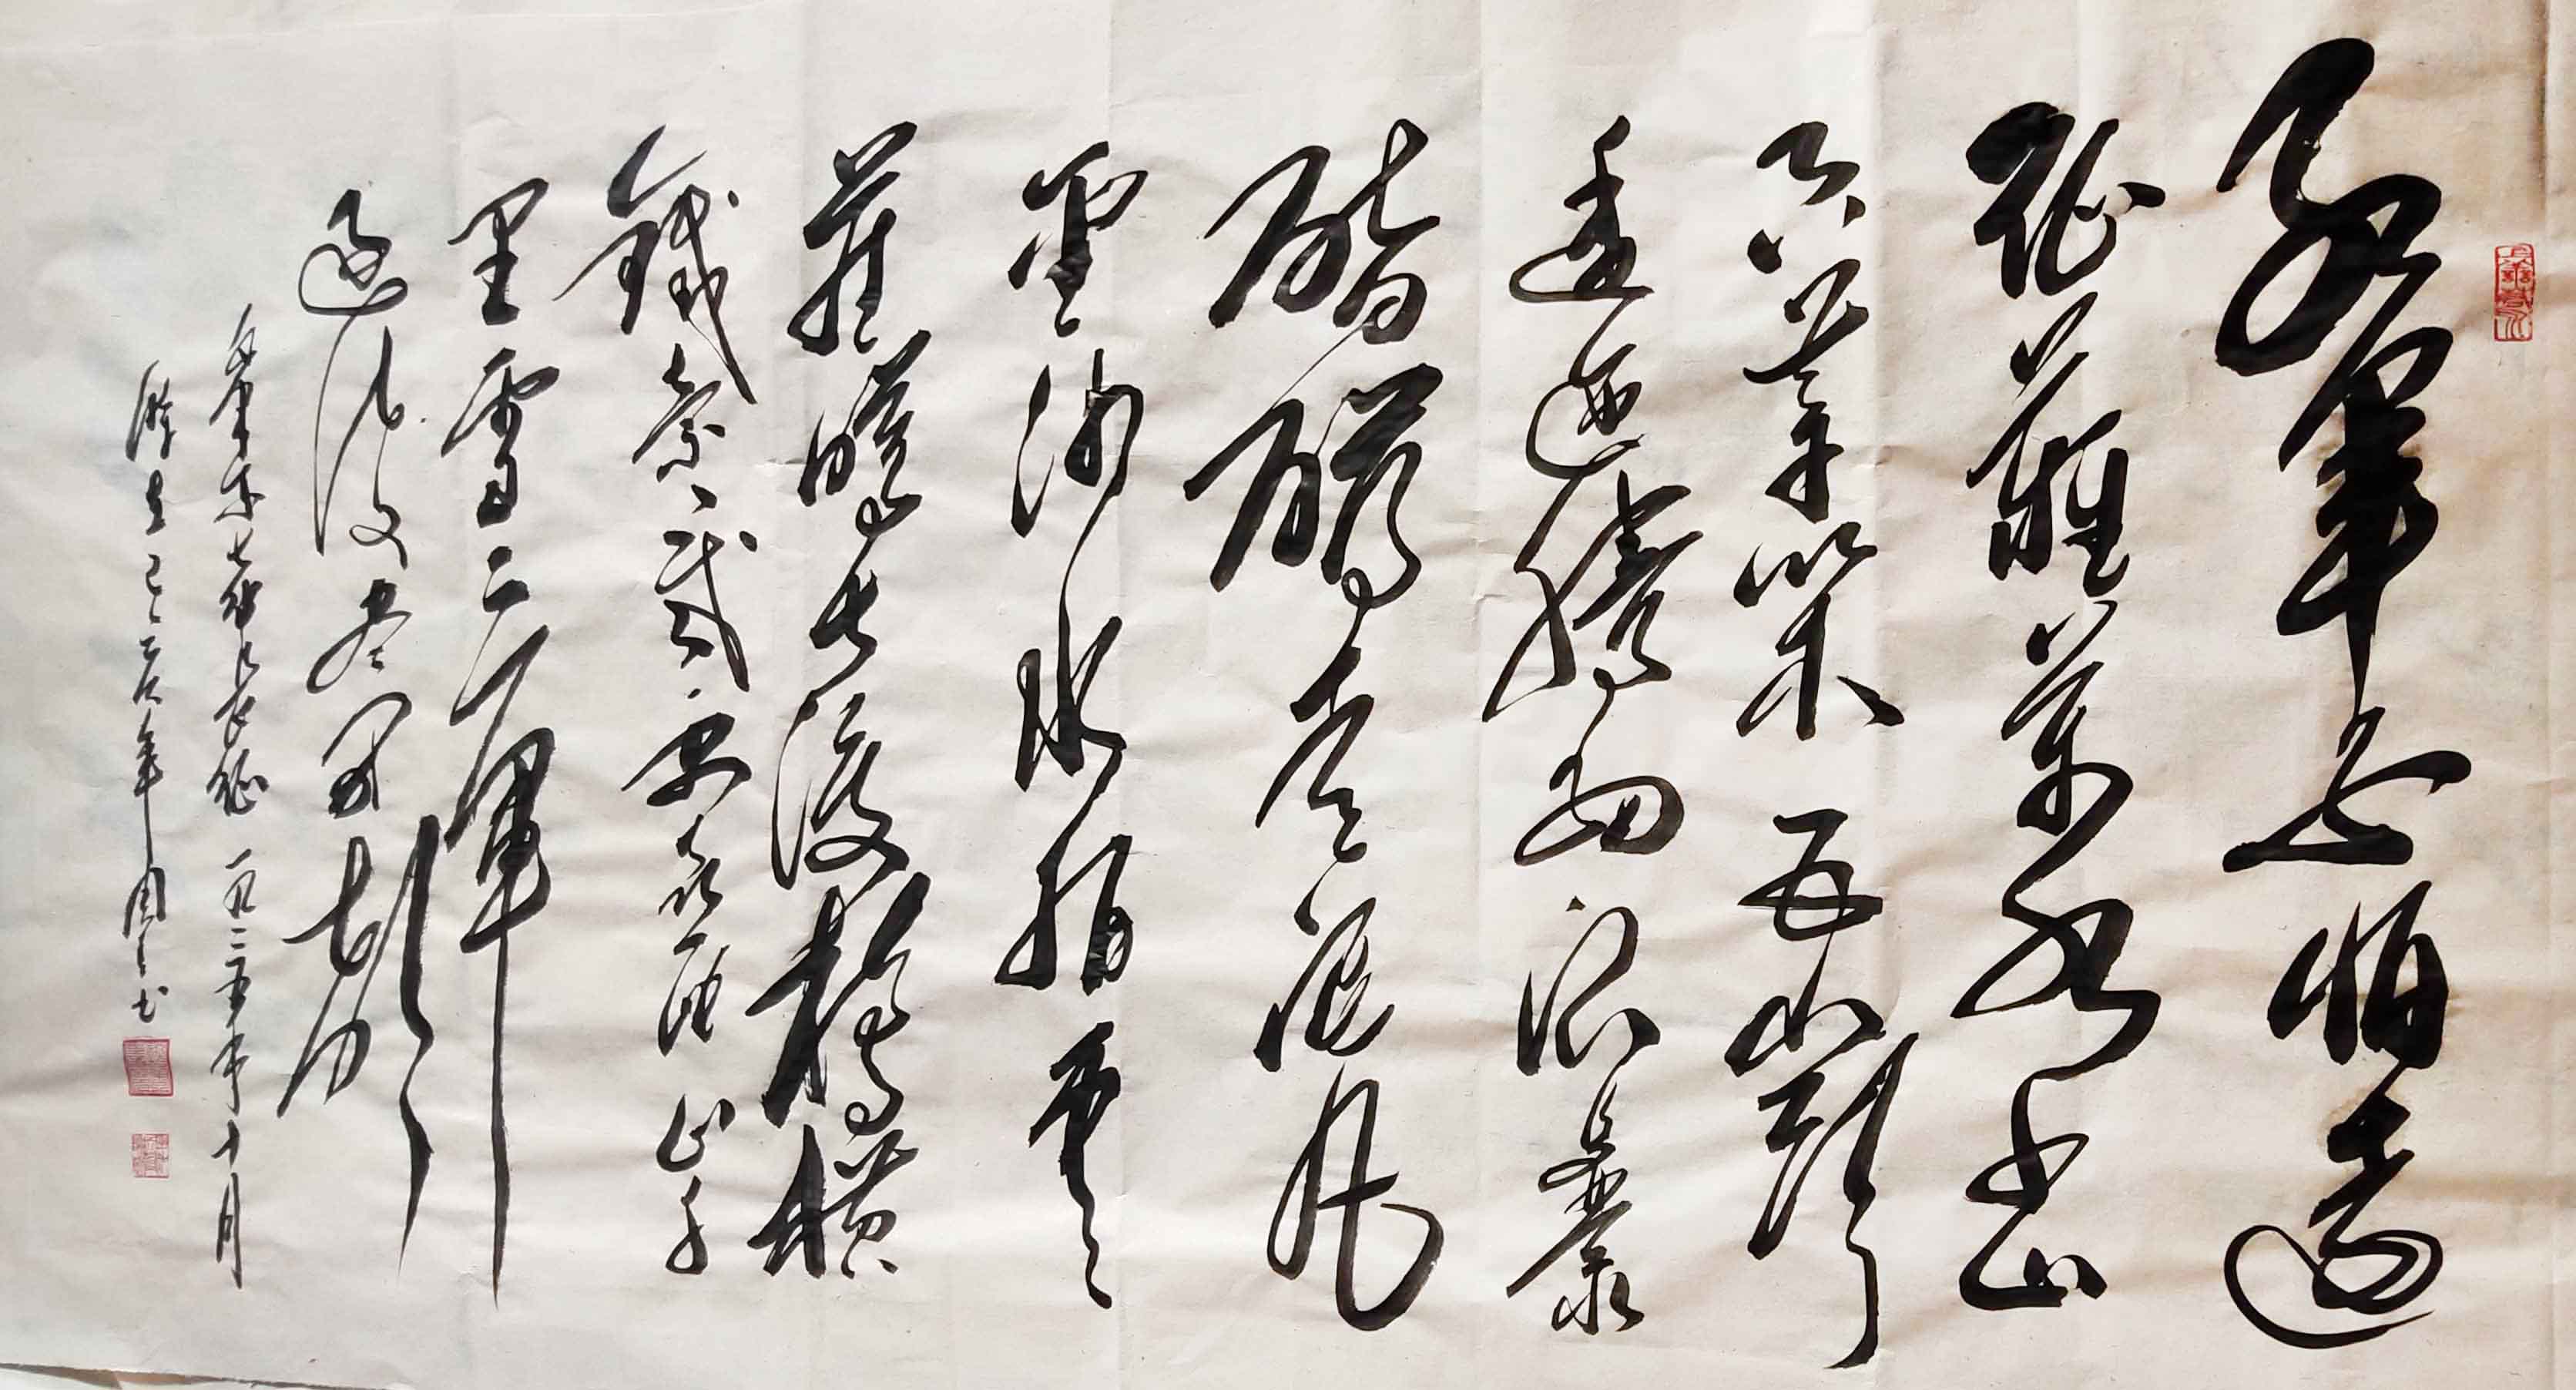 紅軍不怕遠
征難萬水千山
只等閑五嶺
逶迤騰細浪烏蒙
磅礴走泥丸
金沙水拍雲
崖暖大渡橋橫
鐵索寒更喜岷山千
里雪三軍
過後盡開顏
毛澤東七律長征 一九三五年十月
己亥年 书